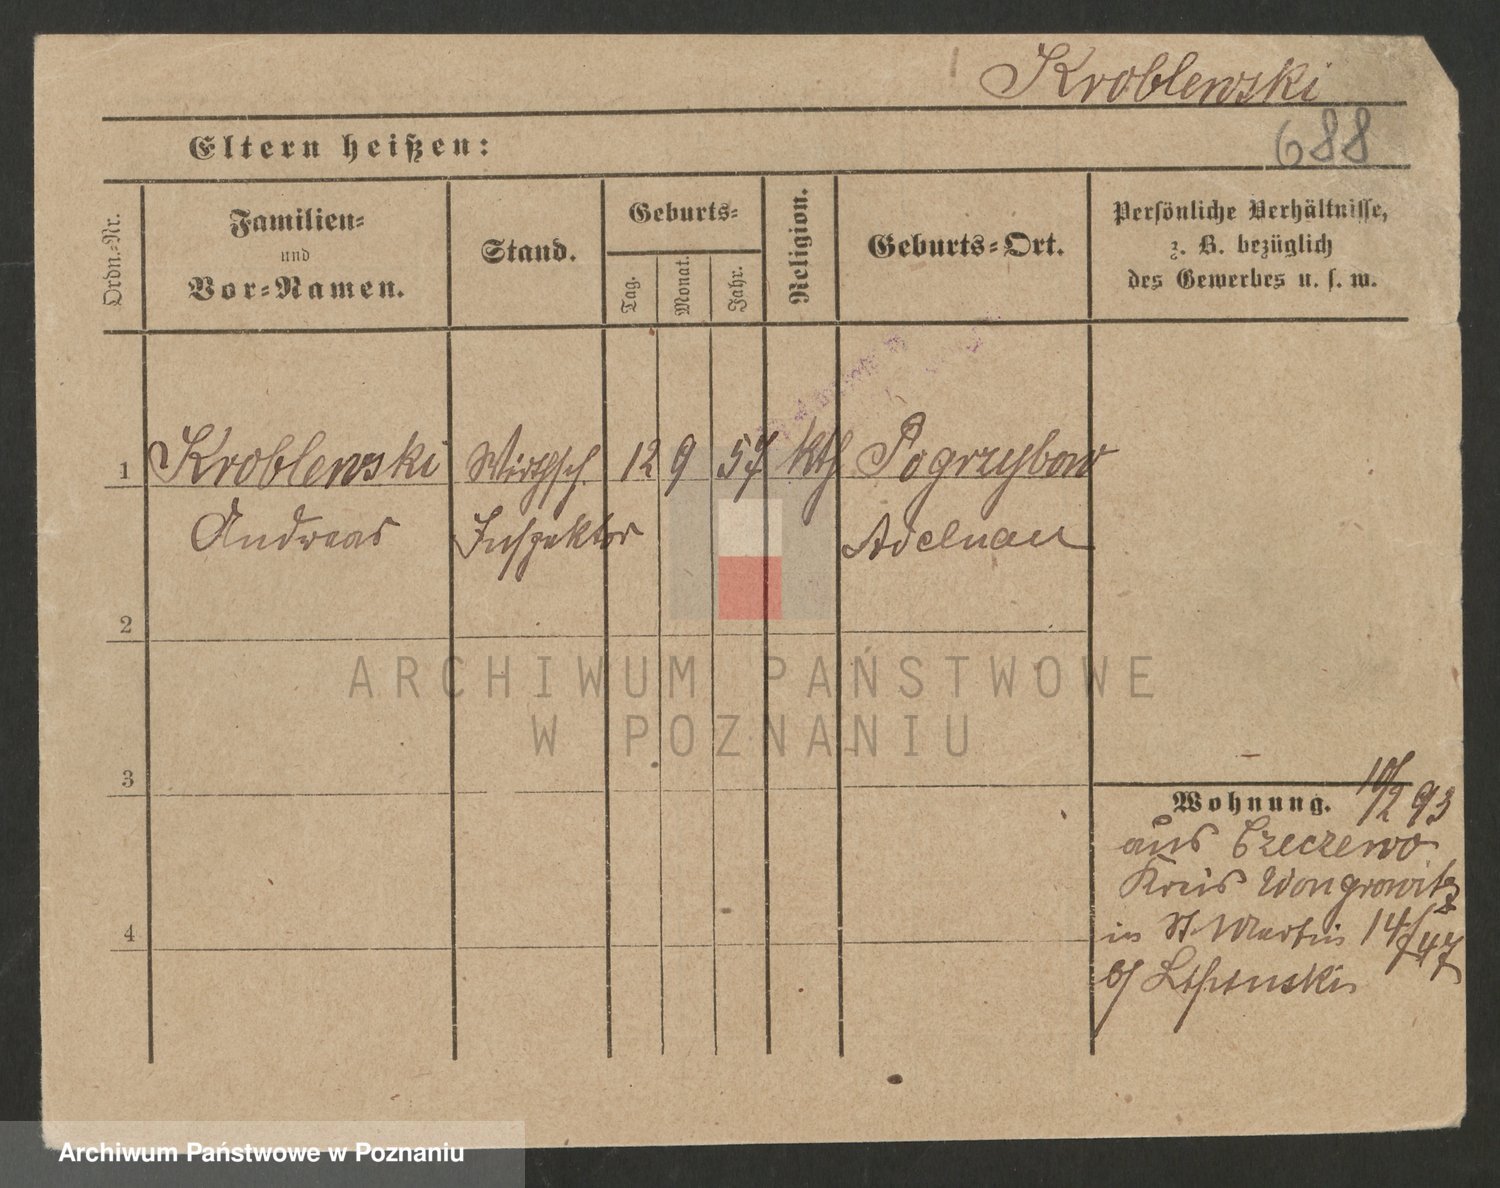 Kroblewski
688
Eltern heißen:
Ordn.-Nr.
Familien-
und
Vor-Namen.
Stand.
Geburts-
Tag.
Monat.
Jahr.
Religion.
Geburts-Ort.
Persönliche Verhältnisse,
z. B. bezüglich
des Gewerbes u. s. w.
1 Kroblewski Wirthsch. 12 9 57 kth Pogrzybow
Andreas Inspektor Adelnau
2
3
4
Wohnung. 10/2 93
aus Czeczewo
Kreis Wongrowitz
in St Martin 14/47
b/
ARCHIWUM PAŃSTWOWE
W POZNANIU
Archiwum Państwowe w Poznaniu